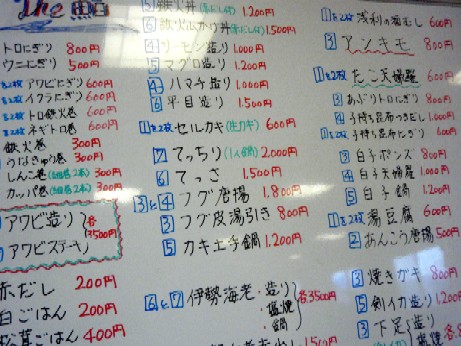 The
トロにぎり 800円
ウニにぎり 500円
アワビにぎり 600円
イクラにぎり 600円
トロ鉄火巻 600円
ネギトロ巻 600円
鉄火巻 300円
うなきゅう巻 300円
しんこ巻 300円
カッパ巻 300円
アワビ造り
アワビステーキ
各3500円
赤だし 200円
白ごはん 200円
松茸ごはん 400円
5 鉄火丼 1,200円
6 鉄火 丼 1,500円
4 サーモン造り 1,000円
5 マグロ造り 1,200円
4 ハマチ造り 1,000円
6 平目造り 1,500円
1を2枚 セルカキ(生ガキ) 600円
7 てっちり(1人鍋) 2,000円
6 てっさ 1,500円
3と4 フグ唐揚 1,800円
3 フグ皮湯引き 800円
5 カキ土手鍋 1,200円
6と7 伊勢海老・造り
・塩焼
・鍋
各3500円
1を2枚 浅利の酒むし 600円
3 アンキモ 800円
1を2枚 たこ天婦羅 600円
3 あぶりトロにぎり 800円
4 子持ち昆布 1,000円
子持ち昆布にぎり 600円
3 白子ポンズ 800円
4 白子天婦羅 1,000円
5 白子鍋 1,200円
1を2枚 湯豆腐 600円
2 あんこう唐揚 500円
3 焼きガキ 800円
5 剣イカ造り 1,200円
3 下足 造り
塩焼